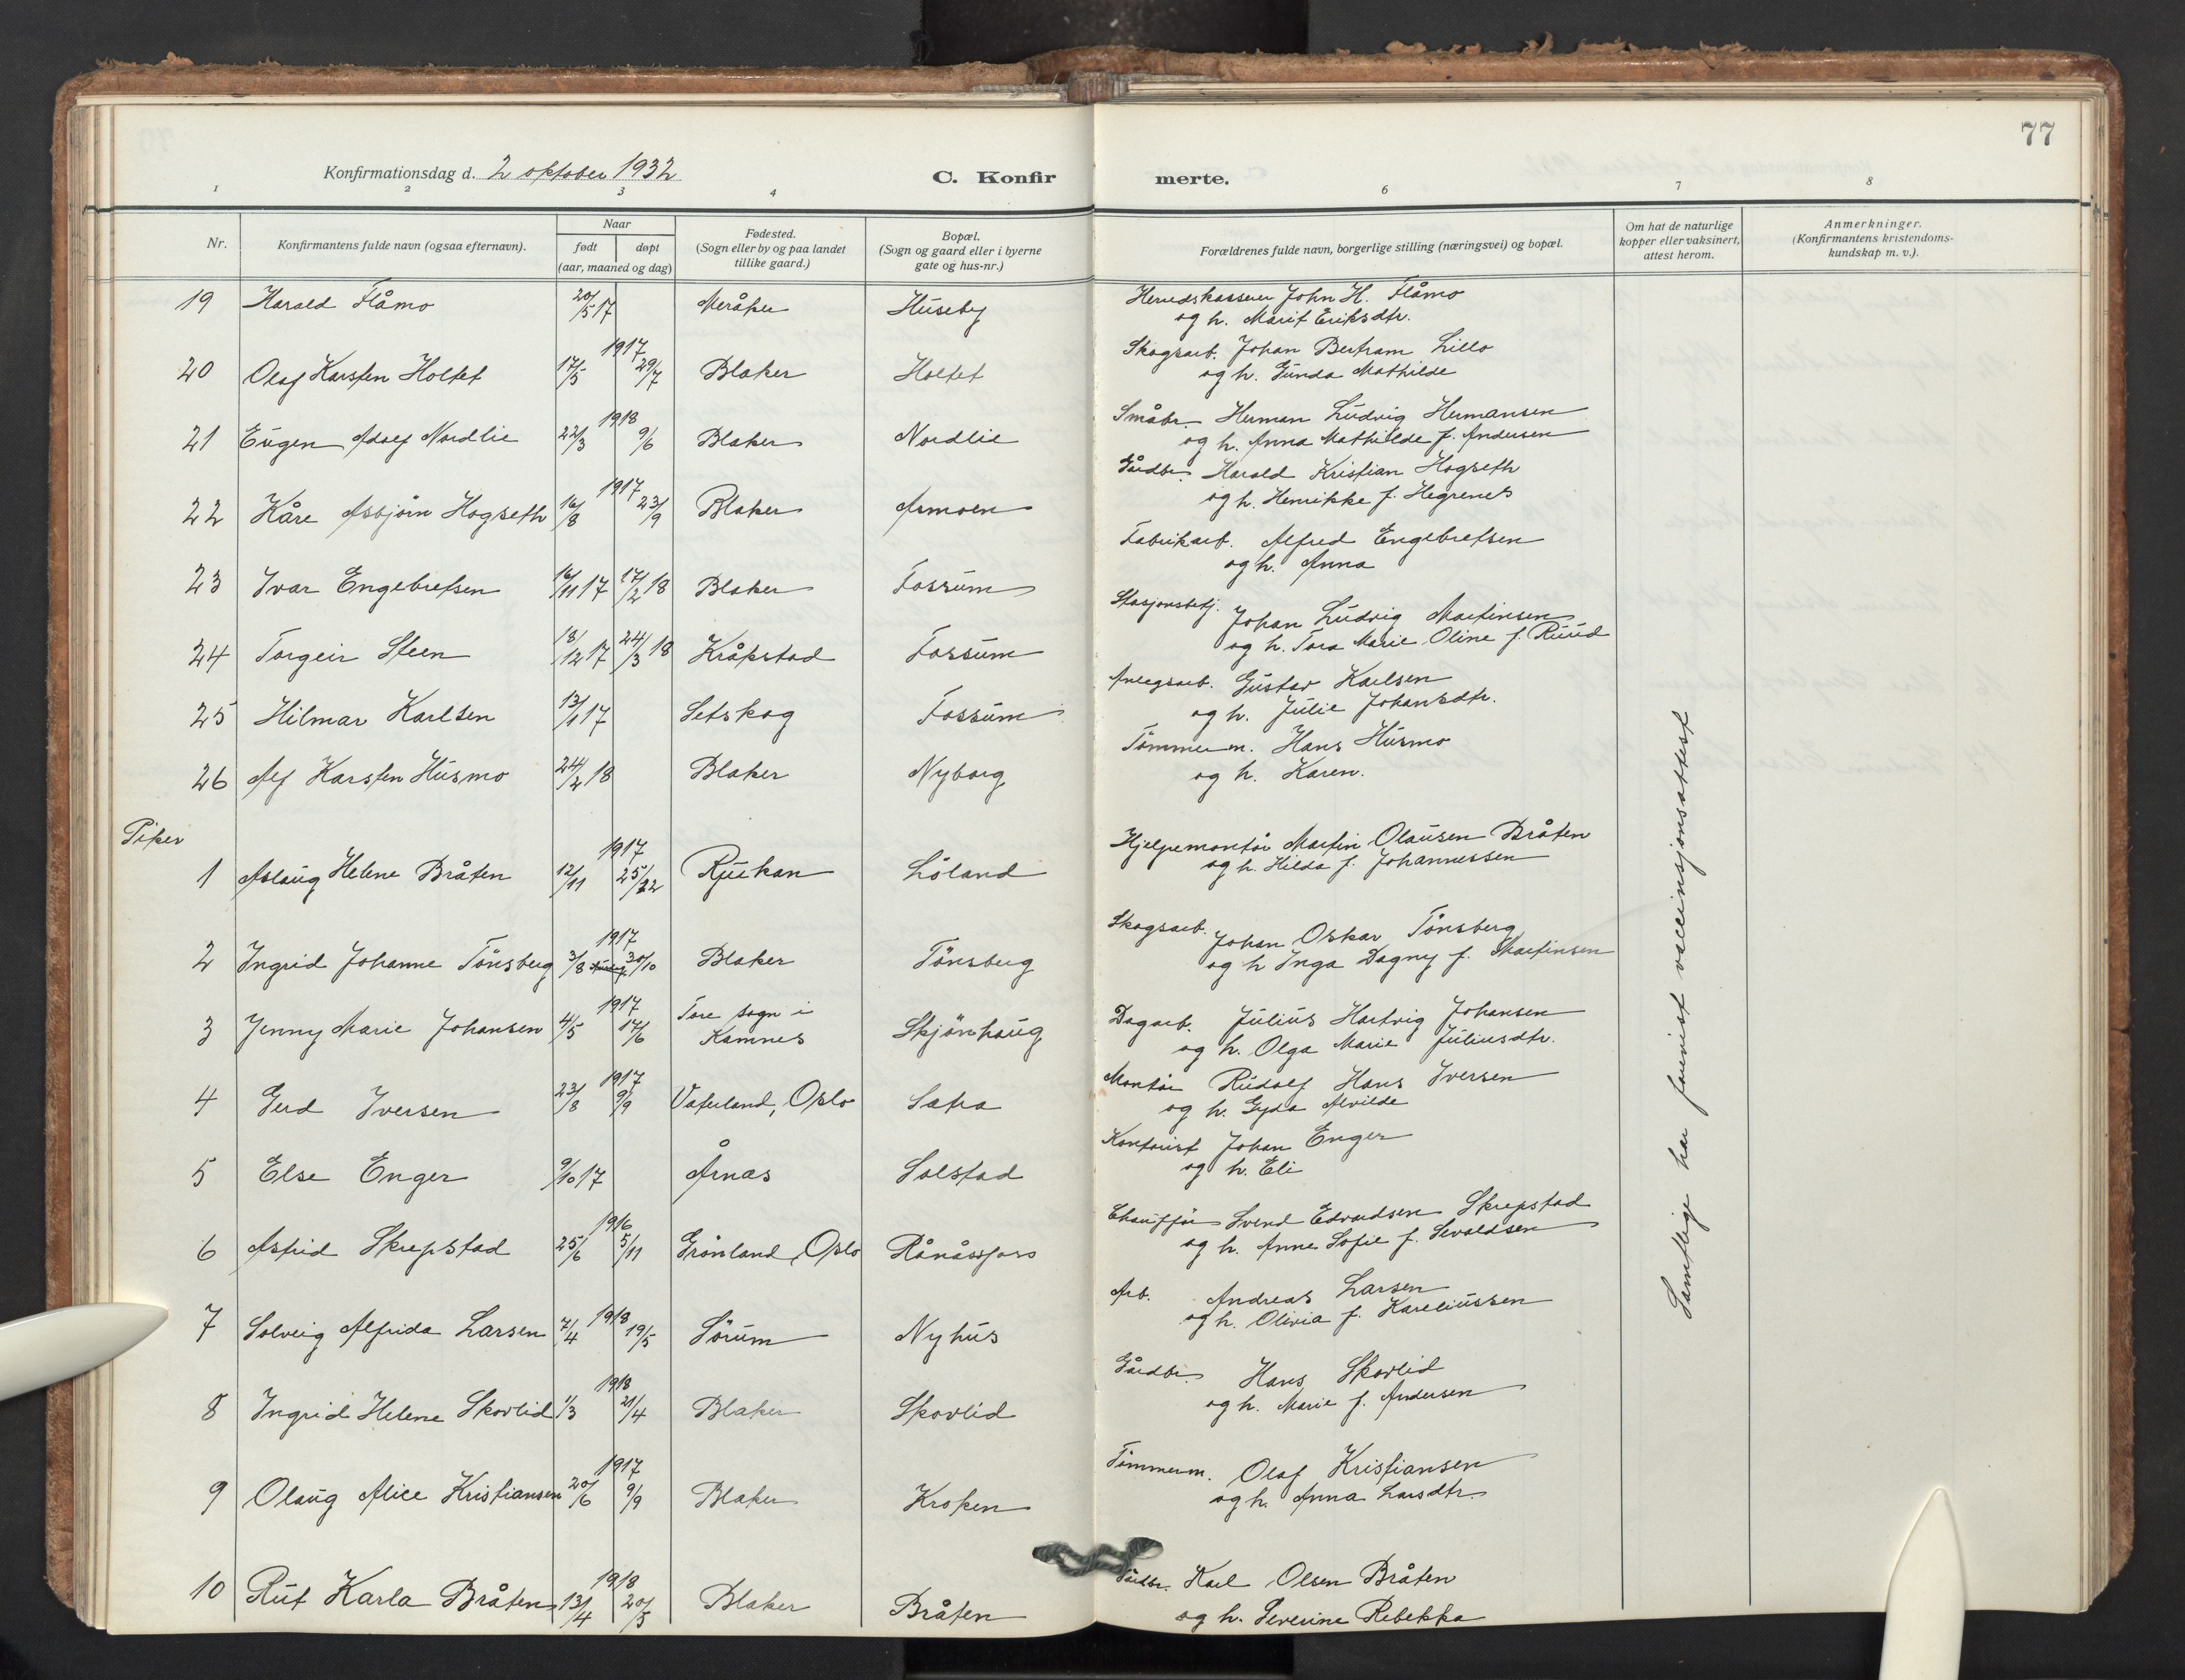 77
Konfirmationsdag d. 2 oktober 1932
C. Konfirmerte.
1 2 3 4 6 7 8
Nr.
Konfirmantens fulde navn (ogsaa efternavn).
Naar
født døpt
(aar, maaned og dag)
Fødested.
(Sogn eller by og paa landet
tillike gaard.)
Bopæl.
(Sogn og gaard eller i byerne
gate og hus-nr.)
Forældrenes fulde navn, borgerlige stilling (næringsvei) og bopæl.
Om hat de naturlige
kopper eller vaksinert,
attest herom.
Anmerkninger.
(Konfirmantens kristendoms-
kundskap m. v.).
19 Harald Flåmo 20/5 17 Meråker Huseby Herredskasserer John H. Flåmo
og h. Marit Eriksdtr.
20 Olaf Karsten Holtet 17/5 1917 29/7 Blaker Holtet Skogsarb. Johan Bertram Lillo
og h. Gunda Mathilde
21 Eugen Adolf Nordlie 22/3 1918 9/6 Blaker Nordlie Småbr. Herman Ludvig Hermansen
og h. Anna Mathilde f. Andersen
22 Kåre Asbjørn Hogseth 16/8 1917 23/9 Blaker Asmoen Gårdbr. Harald Kristian Hogseth
og h. Henrikke f. Hegrenes
23 Ivar Engebretsen 16/11 17 17/2 18 Blaker Fossum Fabrikarb. Alfred Engebretsen
og h. Anna
24 Torgeir Steen 18/12 17 24/3 18 Kråkstad Fossum Stasjonsbetj. Johan Ludvig Martinsen
og h. Tora Marie Oline f. Ruud
25 Hilmar Karlsen 13/1 17 Setskog Fossum Anlegsarb. Gustav Karlsen
og h. Julie Johansdtr.
26 Alf Karsten Husmo 24/2 18 Blaker Nyborg Tømmerm. Hans Husmo
og h. Karen.
Piker
1 Aslaug Helene Bråten 12/11 1917 25/12 Rjukan Löland Hjelpemontør Martin Olausen Bråten
og h. Hilda f. Johannessen
2 Ingrid Johanne Tönsberg 3/8 1917 30/10 Blaker Tönsberg Skogsarb. Johan Oskar Tönsberg
og h Inga Dagny f. Martinsen
3 Jenny Marie Johansen 4/5 1917 17/6 Tore sogn i
Kamnes Skjönhaug Dagarb. Julius Hartvig Johansen
og h. Olga Marie Juliusdtr.
4 Gerd Iversen 23/8 1917 9/9 Vaterland, Oslo Satra Montør Rudolf Hans Iversen
og h. Gyda Alvilde
5 Else Enger 9/10 17 Årnas Solstad Kontorist Johan Enger
og h. Eli
6 Astrid Skrepstad 25/6 1916 5/11 Grönland, Oslo Rånåssfoss Chauffør Svend Edvardsen Skrepstad
og h. Anne Sofie f. Sevaldsen
7 Solveig Alfrida Larsen 7/4 1918 19/5 Sörum Nyhus Arb. Andreas Larsen
og h. Olivia f. Kareliussen
8 Ingrid Helene Skovlid 1/3 1918 21/4 Blaker Skovlid Gårdbr. Hans Skovlid
og h. Marie f. Andersen
9 Olaug Alice Kristiansen 20/6 1917 9/9 Blaker Kroken Tömmerm. Olaf Kristiansen
og h. Anna Larsdtr.
10 Rut Karla Bråten 13/4 1918 20/5 Blaker Bråten Gårdbr. Karl Olsen Bråten
og h. Severine Rebekka
Samtlige har forevist vaccinsjonsattest